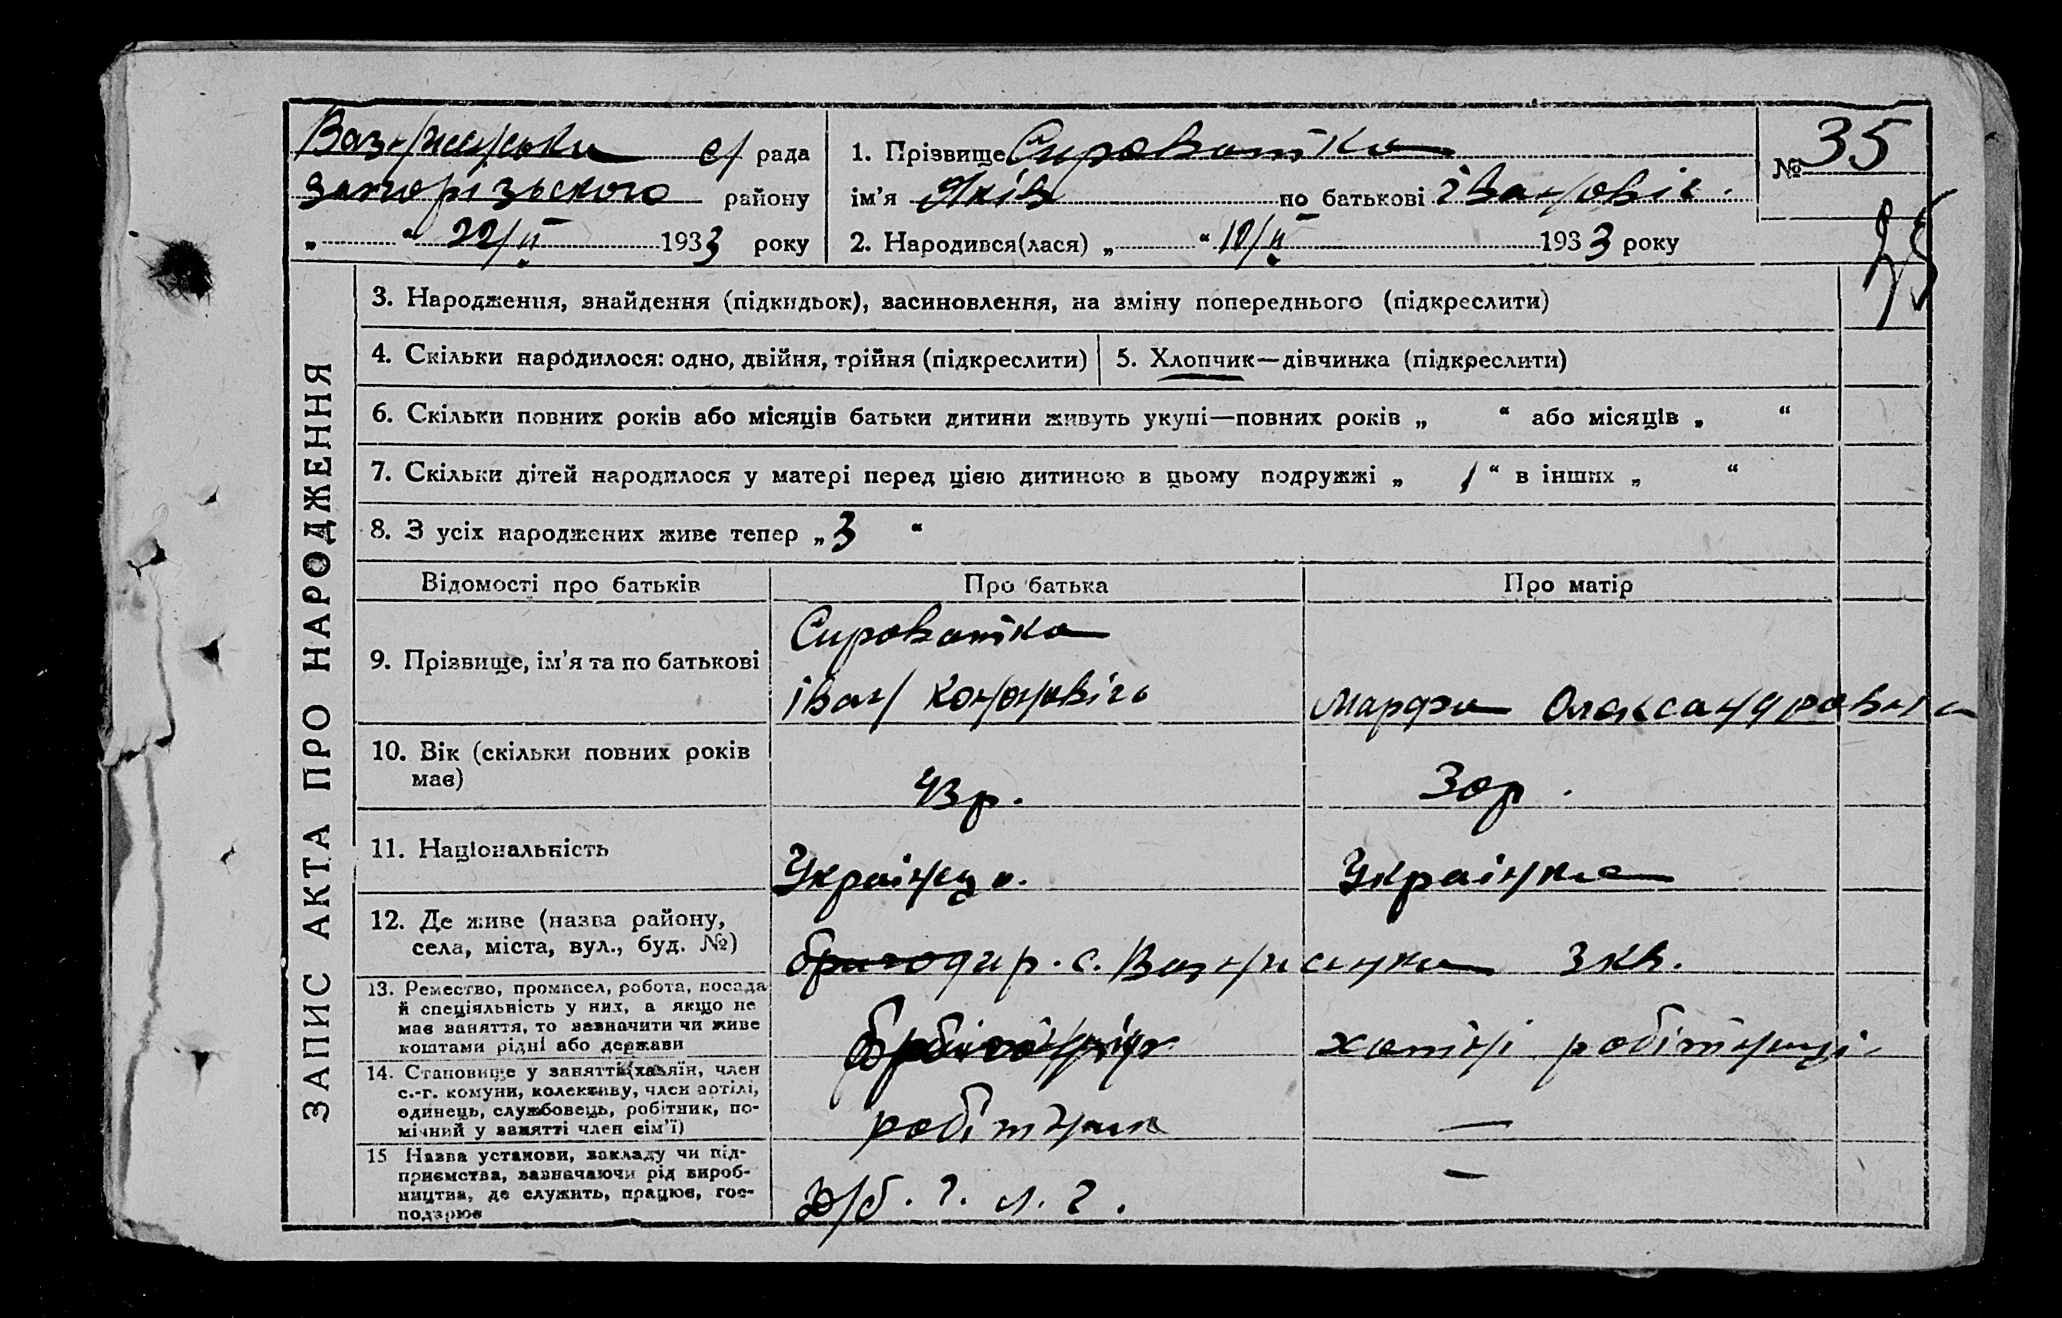 Вознисунська с/ рада
запорізьського району
„ “ 22/II 1933 року
1. Прізвище Сироватка
ім’я Яків по батькові івановіч.
2. Народився(лася) „ “ 10/II 1933 року
№ 35
ЗАПИС АКТА ПРО НАРОДЖЕННЯ
3. Народження, знайдення (підкидьок), засиновлення, на зміну попереднього (підкреслити)
4. Скільки народилося: одно, двійня, трійня (підкреслити)
5. Хлопчик—дівчинка (підкреслити)
6. Скільки повних років або місяців батьки дитини живуть укупі—повних років „ “ або місяців „ “
7. Скільки дітей народилося у матері перед цією дитиною в цьому подружжі „ 1 “ в інших „ “
8. З усіх народжених живе тепер „ 3 “
Відомості про батьків
Про батька
Про матір
9. Прізвище, ім’я та по батькові
Сироватка
іван кононовічь
Марфа Олександровна
10. Вік (скільки повних років
має)
43р.
30р.
11. Національність
Українць.
Українка
12. Де живе (назва району,
села, міста, вул., буд. №)
с. Вознисинка 3 кв.
13. Ремество, промисел, робота, посада
й спеціяльність у них, а якщо не
має заняття, то зазначити чи живе
коштами рідні або держави
хатні робітниці
14. Становище у занятті (хазяїн, член
с.-г. комуни, колективу, член артілі,
одинець, службовець, робітник, по-
мічний у занятті член сім’ї)
робітник
—
15 Назва установи, закладу чи під-
приємства, зазначаючи рід вироб-
ництва, де служить, працює, гос-
подарює
—